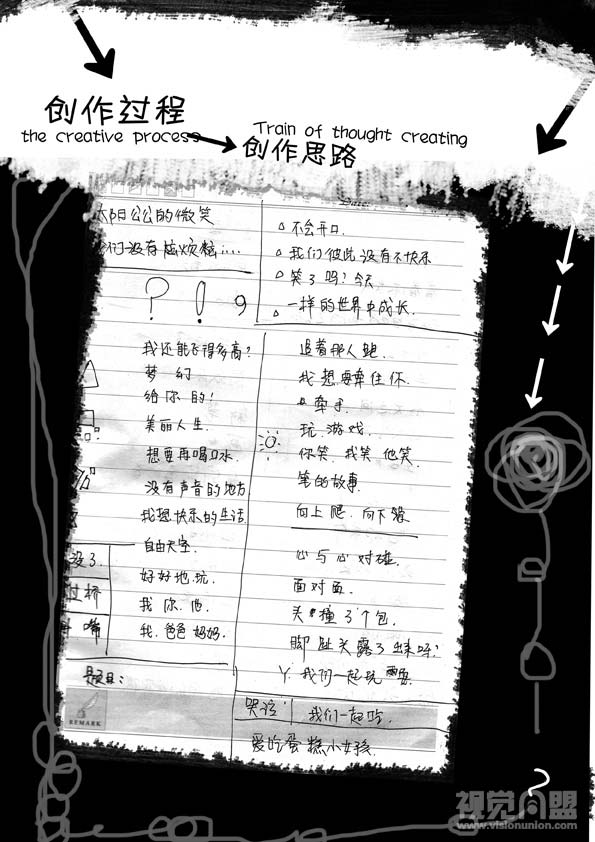 创作过程
the creative process
Train of thought creating
创作思路
太阳公公的微笑
们没有烦恼……
? ! 9
不会开口.
我们彼此没有不快乐
笑了吗?今天
一样的世界中成长.
我还能飞得多高?
梦幻
给你的!
美丽人生.
想要再喝口水.
没有声音的地方
我想快乐的生活
自由天空.
好好地玩.
我.你.他.
我.爸爸妈妈.
没了.
过桥
嘴
追着那人跑.
我想要牵住你.
牵手.
玩.游戏.
你笑.我笑.他笑.
笔的故事.
向上爬.向下
心与心对碰.
面对面.
头撞了个包.
脚趾头露了出来呀?
Y.我们一起玩
题目:
REMARK
哭泣
我们一起吃.
爱吃蛋糕小女孩.
视觉同盟
www.visionunion.com